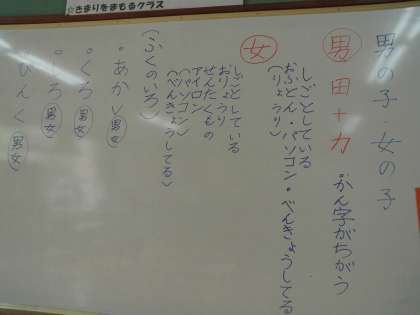 ☆きまりをまもるクラス
男の子・女の子
男 田＋力 ・かん字がちがう
しごとしている
おふとん・パソコン・べんきょうしてる
(りょうり)
女
しごとしている
おりょうり
せんたくもの
アイロン
(パソコン)
(べんきょうしてる)
(ふくのいろ)
・あか 男女
・くろ 男女
・ろ 男女
ぴんく 男女